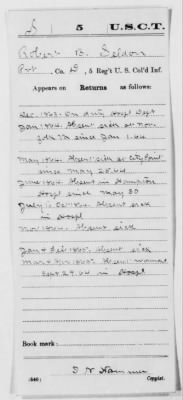 S | 5 | U.S.C.T.
Robert B. Seldon
Pvt, Co. D, 5 Reg't U. S. Col'd Inf.
Appears on Returns as follows:
Dec. 1863. On duty Hosp Dept
Jan 1864. Absent sick at Nor-
folk Va since Jan 1. 64
May 1864. Absent sick at City Point
since May 25. 64
June 1864. Absent in Hampton
Hospl since May 30
July to Oct 1864. Absent sick
in Hospl
Nov 1864. Absent sick
Jan & Feb 1865. Absent sick
Mar & Apr 1865. Absent wounded
Sept 29. 64 in Hospl
Book mark:
(546)
Copyist.